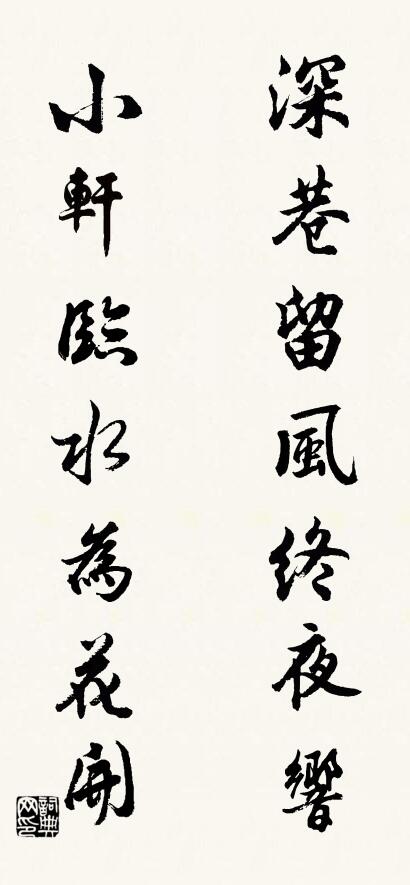 深巷留風終夜響
小軒臨水為花開
詞典網印